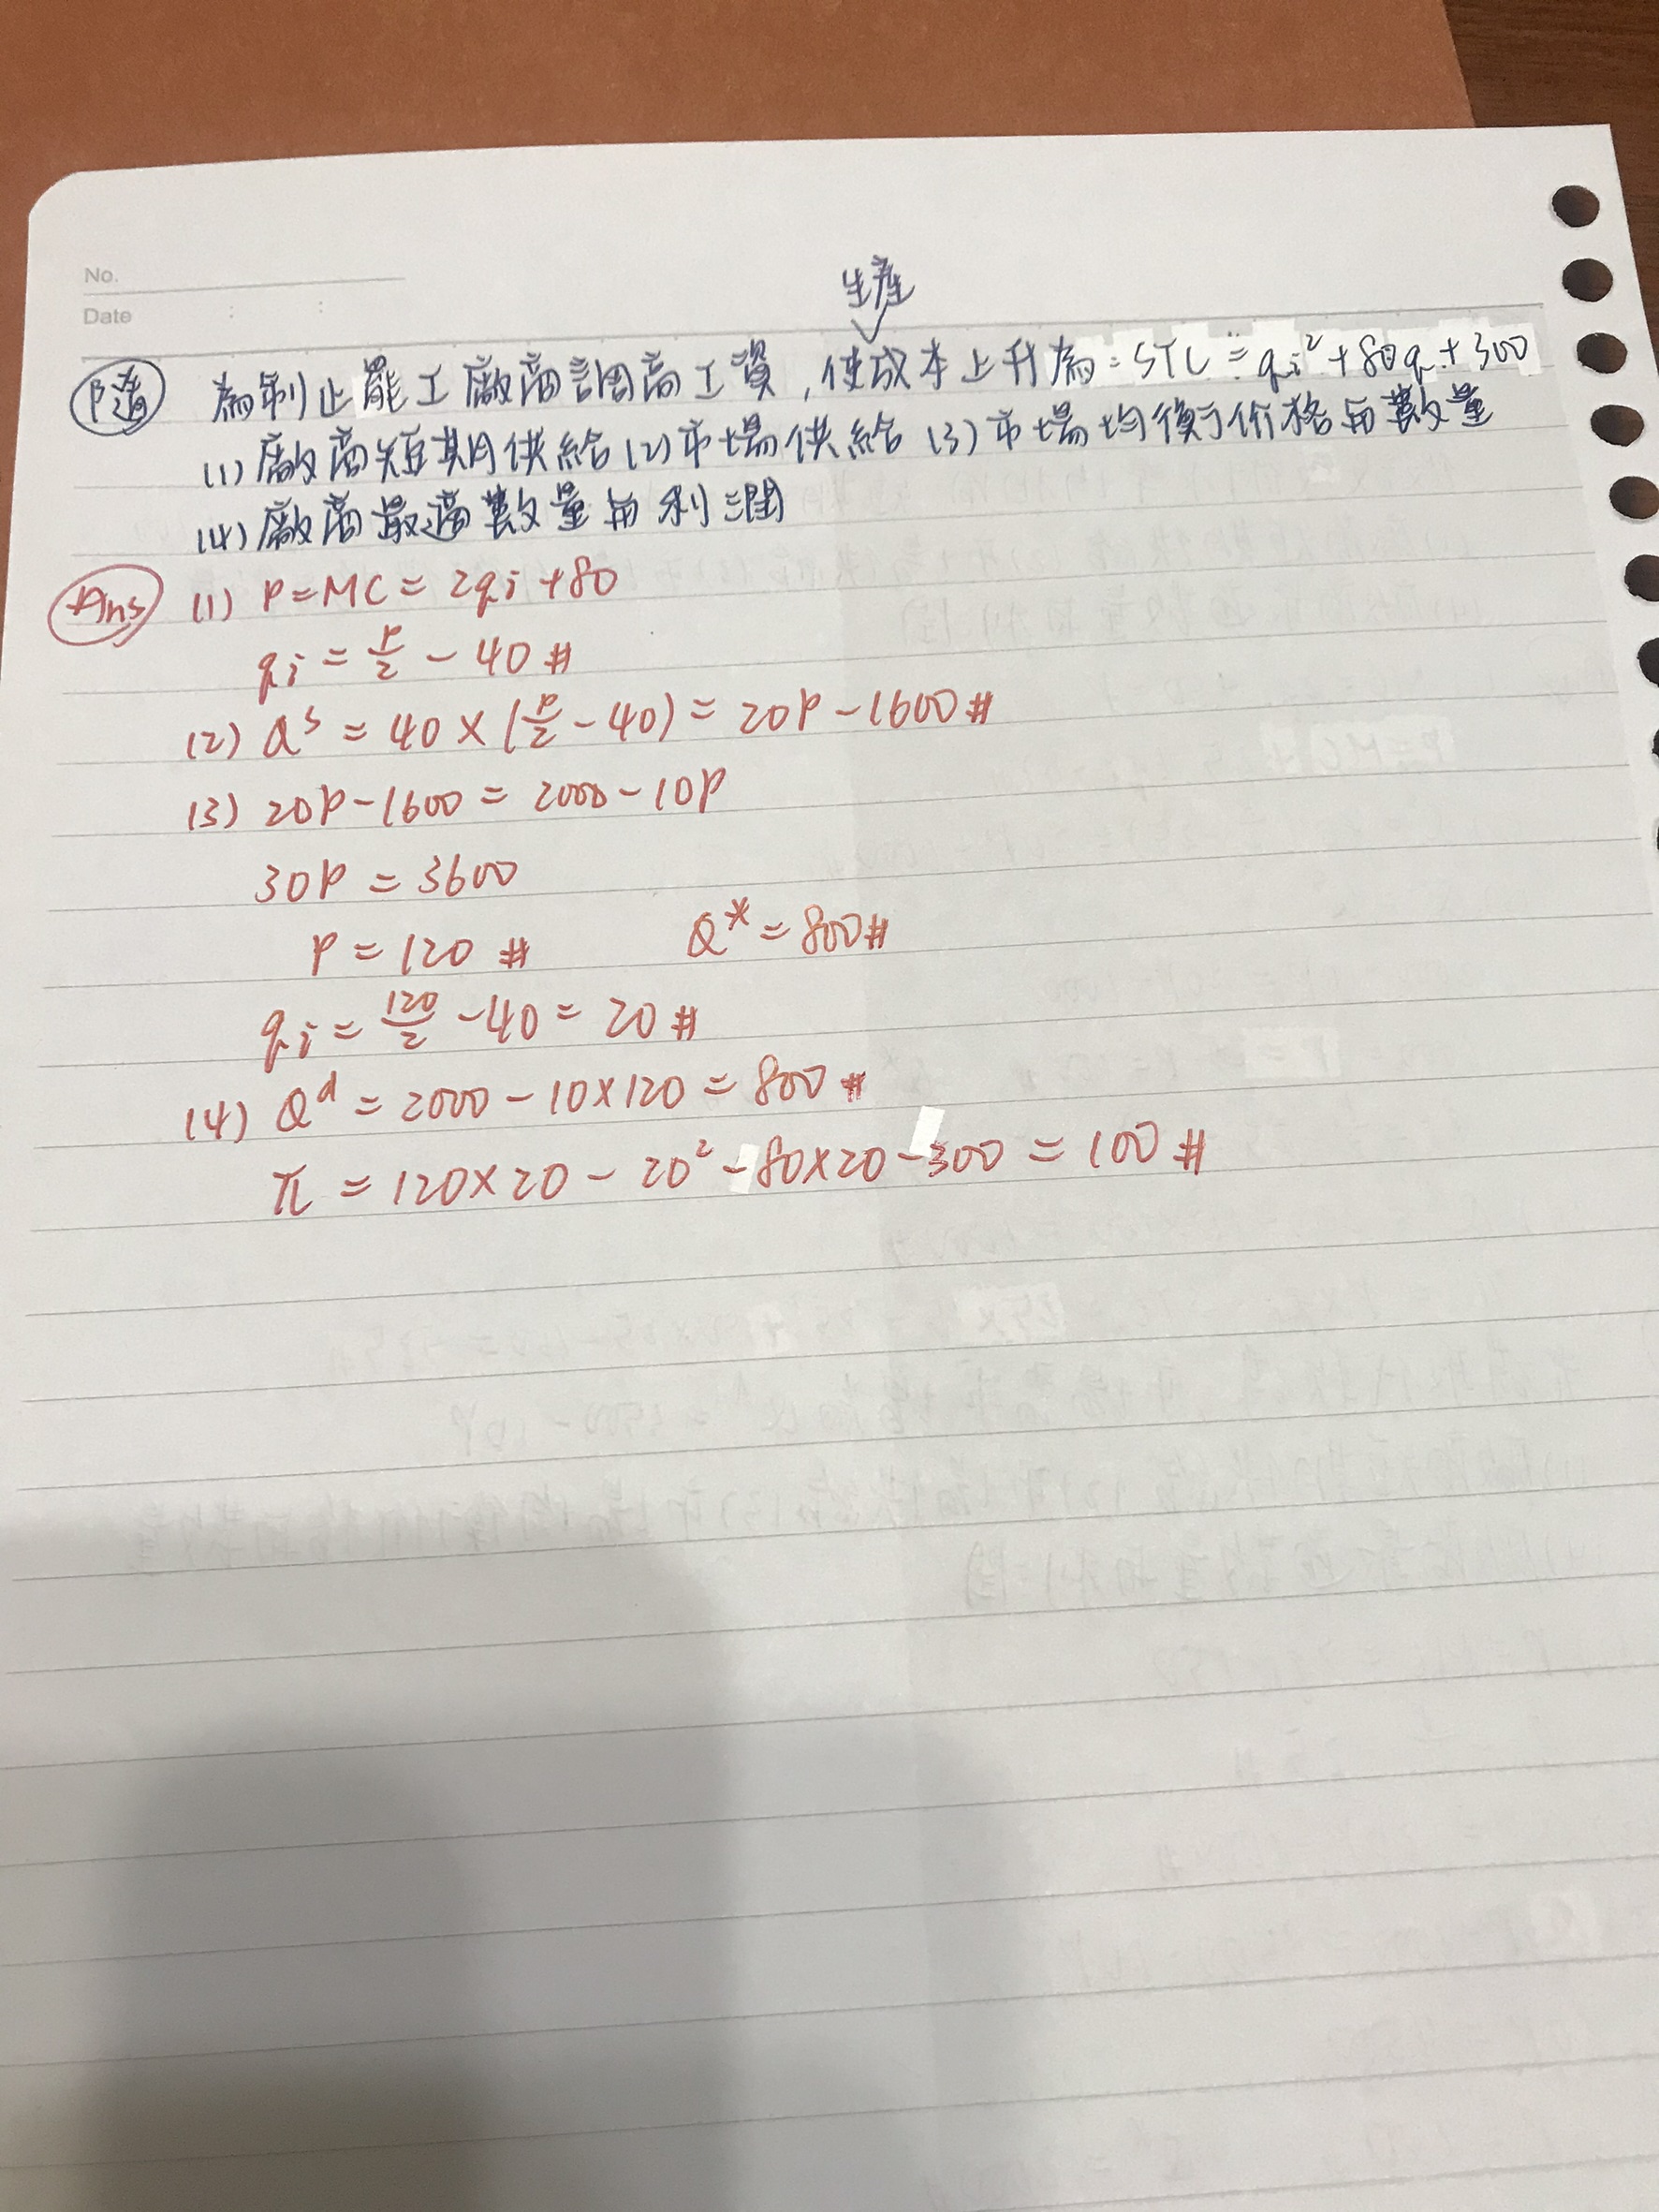 No.
Date : :
生産
隨 為制止罷工廠商調高工資,使成本上升為:STC=qi²+80qi+300
(1)廠商短期供給(2)市場供給(3)市場均衡價格與數量
(4)廠商最適數量與利潤
Ans (1) P=MC=2qi+80
qi=P/2-40#
(2) Q^S=40×(P/2-40)=20P-1600#
(3) 20P-1600=2000-10P
30P=3600
P=120# Q*=800#
qi=120/2-40=20#
(4) Q^d=2000-10×120=800#
π=120×20-20²-80×20-300=100#